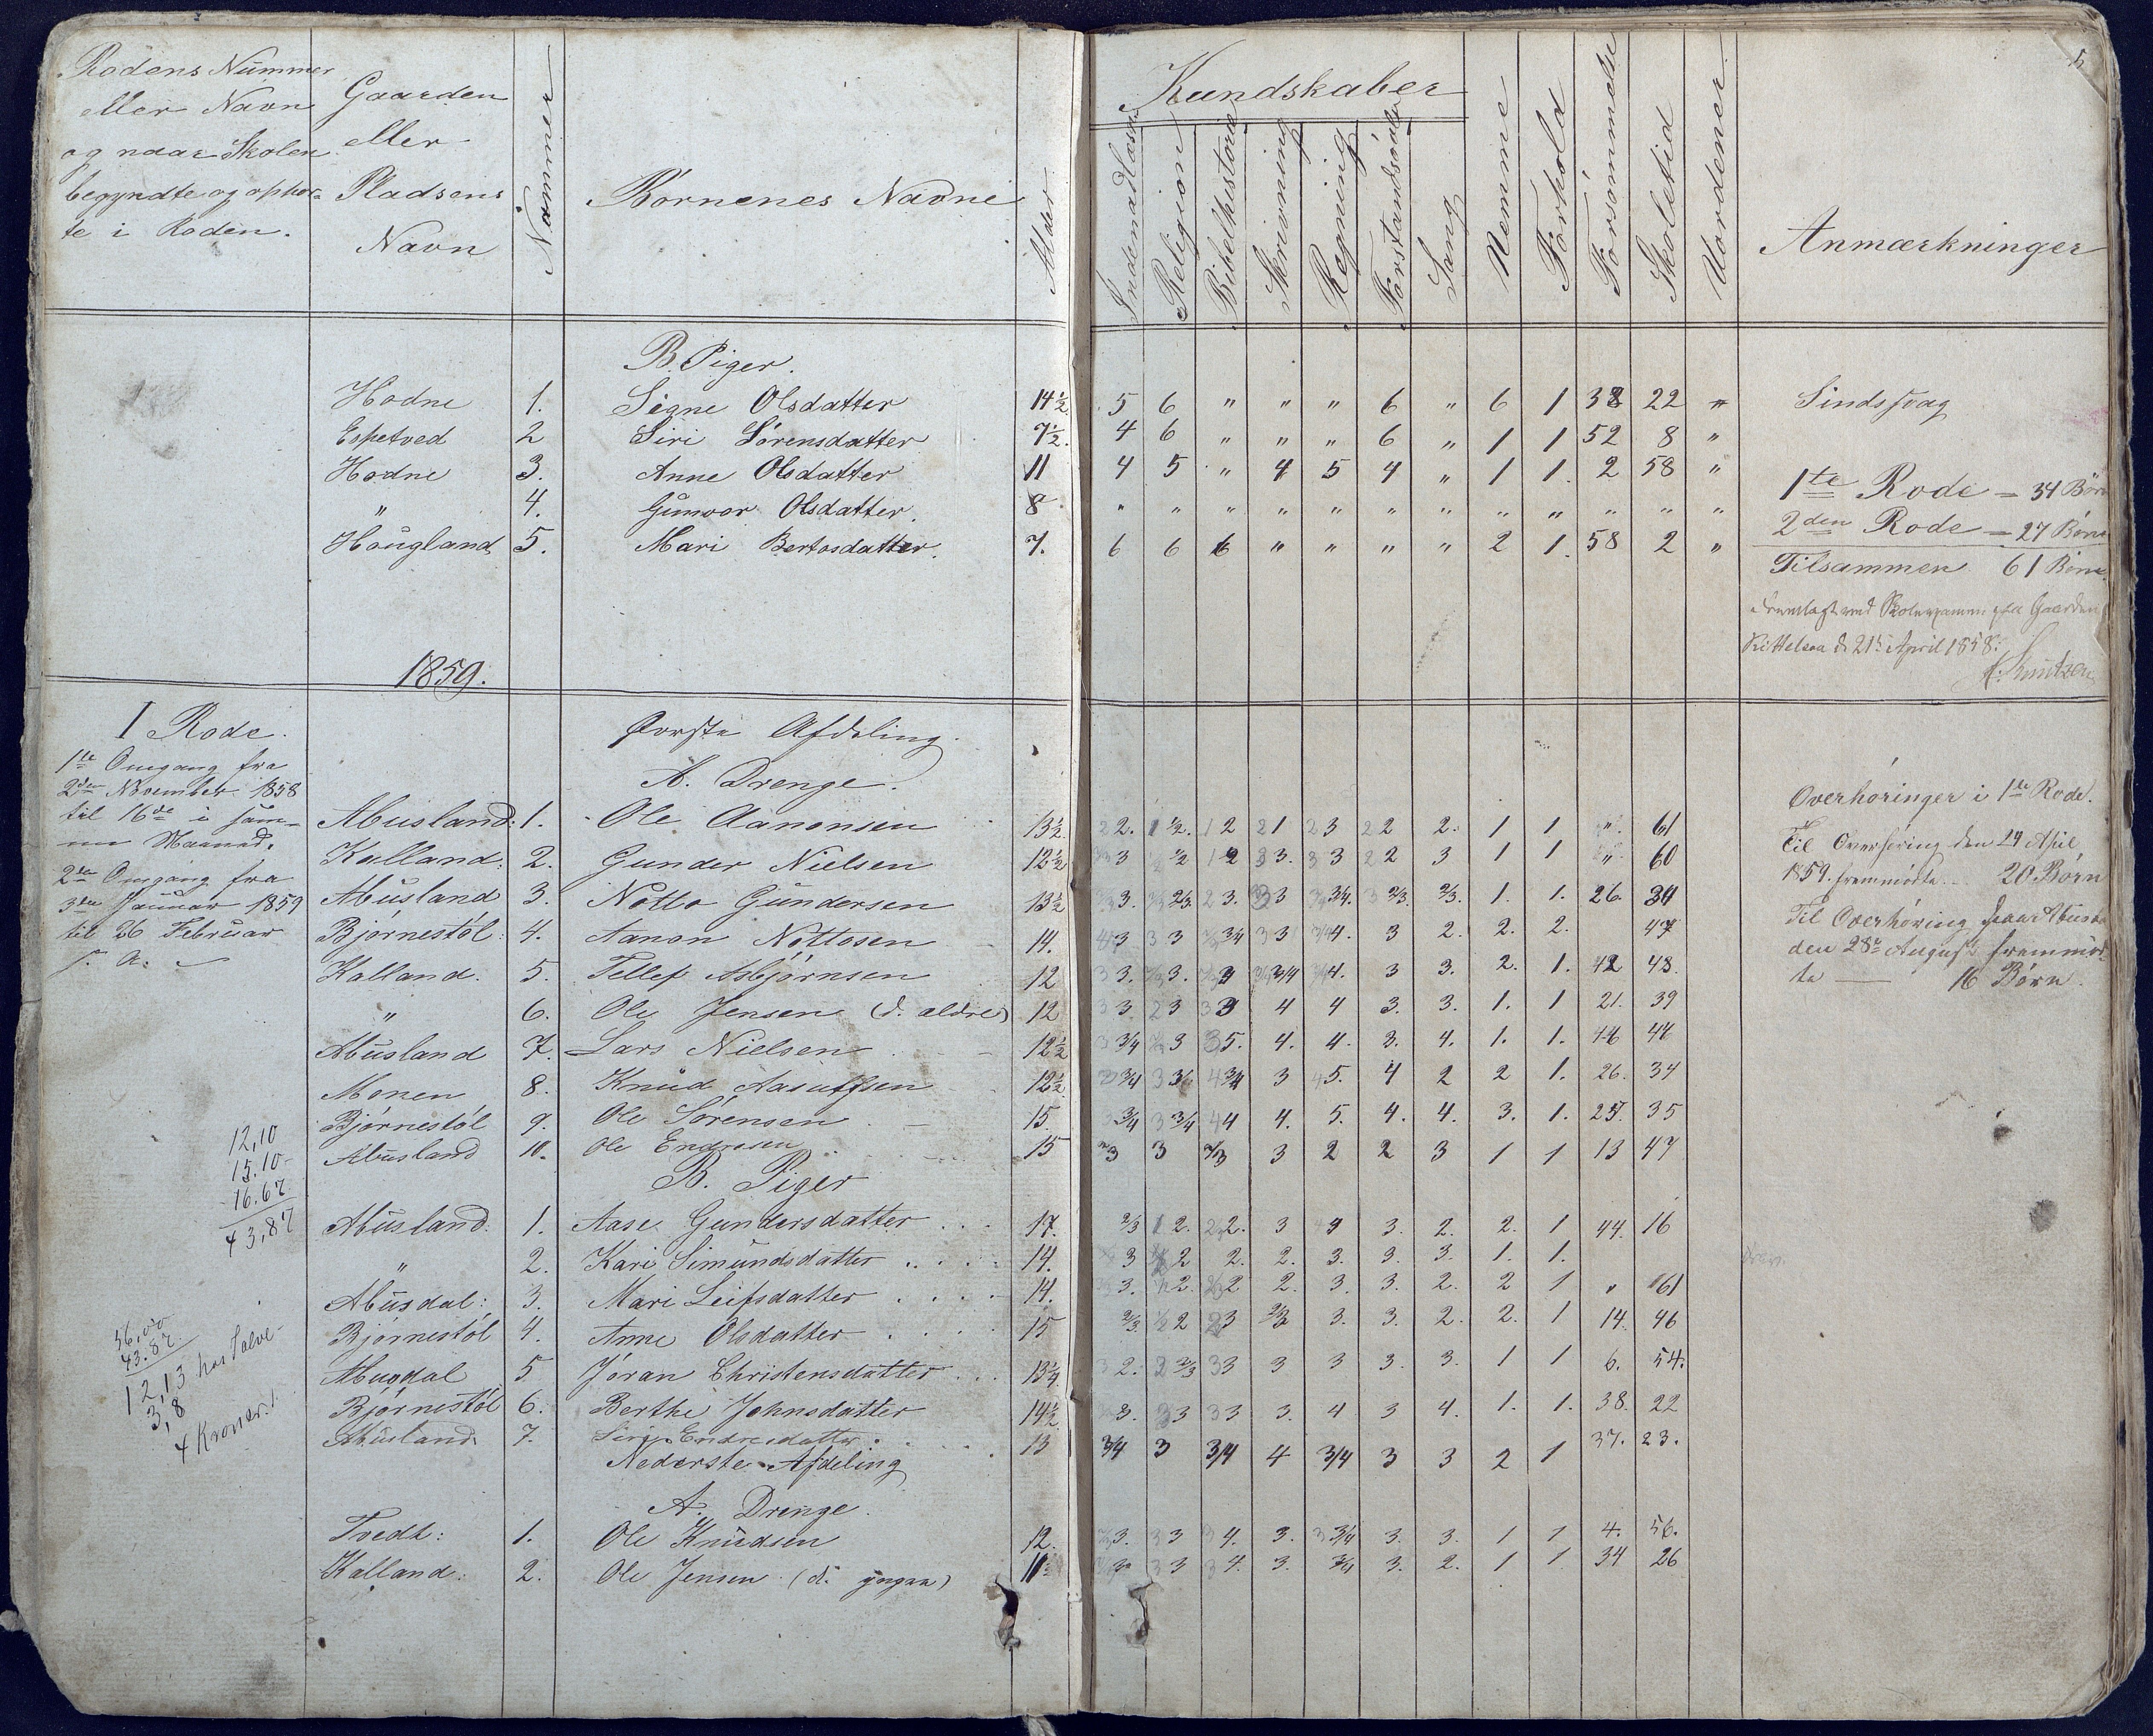 Rodens Nummer
eller Navn
og naar Skolen
begyndte og ophør-
te i Roden.
Gaarden
eller
Pladsens
Navn
Nummer
Børnenes Navne
Alder
Kundskaber
Indenadlæsn
Religion
Bibelhistorie
Skrivning
Regning
Forstandsøvelse
Sang
Nemme
Forhold
Forsømmelse
Skoletid
Vordener
Anmærkninger
5
B. Piger.
Hodne 1. Signe Olsdatter 14½ 5 6 " " " 6 " 6 1 38 22 " Sindssvag
Espetved 2 Siri Sørensdatter 7½. 4 6 " " " 6 " 1 1 52 8 "
Hodne 3. Anne Olsdatter 11 4 5 " 4 5 4 " 1 1. 2 58 "
" 4. Gunvor Olsdatter. 8 " " " " " " " " " " " "
Hougland 5. Mari Bertosdatter. 7. 6 6 6 " " " " 2 1. 58 2 "
1te Rode = 34 Børn
2den Rode = 27 Børn
Tilsammen 61 Børn.
Fremlagt ved Skoleexamen paa Gaarden
Kittelsaa d. 21de April 1858.
1859.
I Rode.
1te Omgang fra
2den November 1858
til 16de i sam-
me Maaned.
2den Omgang fra
3die Januar 1859
til 26 Februar
s. A.
Øverste Afdeling.
A. Drenge.
Abusland: 1. Ole Aanonsen 13½ 2. ½. 2 1 3 2 2. 1 1 " 61
Kalland: 2. Gunder Nielsen 12½ 3 ½ 2 3. 3 2 3 1 1 " 60
Abusland 3. Notto Gundersen 13½ 3. 2/3. 3. 3 3/4. 2/3. 2/3. 1. 1. 26. 34
Bjørnestøl: 4. Aanon Nottosen 14. 3 3 3/4 3 4. 3 2. 2. 2. 47
Kalland. 5. Tellef Asbjørnsen 12 3. 3. 3/4 4. 3 3. 2. 1. 12 48.
" 6. Ole Jensen (d. ældre) 12 3. 3 3 4 4 3. 3. 1. 1 21. 39
Abusland 7. Lars Nielsen 12½ 3/4 3 5. 4. 4. 3. 4. 1. 1.
Monen 8. Knud Aasulfsen 12½. 3/4 3/4 3 5. 4 2 2 1. 26. 34
Bjørnestøl 9. Ole Sørensen 15. 3/4 3/4 4 4. 5. 4. 4. 3. 1. 25. 35
Abusland 10. Ole Endresen 15 3 3 2/3 3 2 2 3 1 1 13 47
B. Piger
Abusland: 1. Aase Gundersdatter 17. 2/3 2. 2. 3 4 3. 2. 2. 1 44. 16
" 2. Kari Simundsdatter 14. 3 2 2. 2. 3. 3. 3. 1. 1.
Abusdal: 3. Mari Leifsdatter 14. 3. 2. 2 2. 3. 3. 2. 2 1 " 61
Bjørnestøl 4. Anne Olsdatter 15 2/3. 2 3 2/3 3. 3. 2. 2. 1 14. 46
Abusdal 5 Jøran Christensdatter 13¼. 2. 2/3 3 3 3 3. 3. 1 1 6. 54.
Bjørnestøl 6. Berthe Johnsdatter 14½ 3. 3 3 3. 4 3 4. 1. 1. 38. 22
Abusland 7. Siri Endresdatter 13 3/4 3 3/4 4 3/4 3 3 2 1 37. 23.
Nederste Afdeling
A. Drenge.
Tvedt: 1. Ole Knudsen 12. 3. 3 4. 3. 3/4 3. 3. 1 1 4. 56.
Kalland: 2. Ole Jensen (d. yngre) 3 4. 3. 3/4 3. 2. 1 1 34 26
Overhøringer i 1te Rode.
Til Overhøring den 24 April
1859. fremmødte 20 Børn
Til Overhøring paa Abusl
den 28de August fremmød-
te — 16 Børn.
12,10
15.10
16.67
43,87
56,00
43.87
12,13 hos Salve
3,8
4 Kroner.